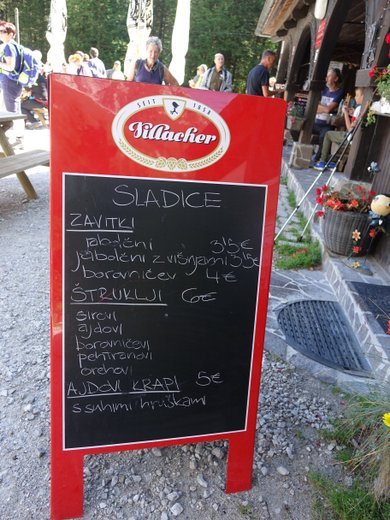 SEIT 1858
Villacher
SLADICE
ZAVITKI
jabolčni 3,5€
jabolčni z višnjami 3,5€
borovničev 4€
ŠTRUKLJI 6€
sirovi
ajdovi
borovničevi
pehtranovi
orehovi
AJDOVI KRAPI 5€
s suhimi hruškami